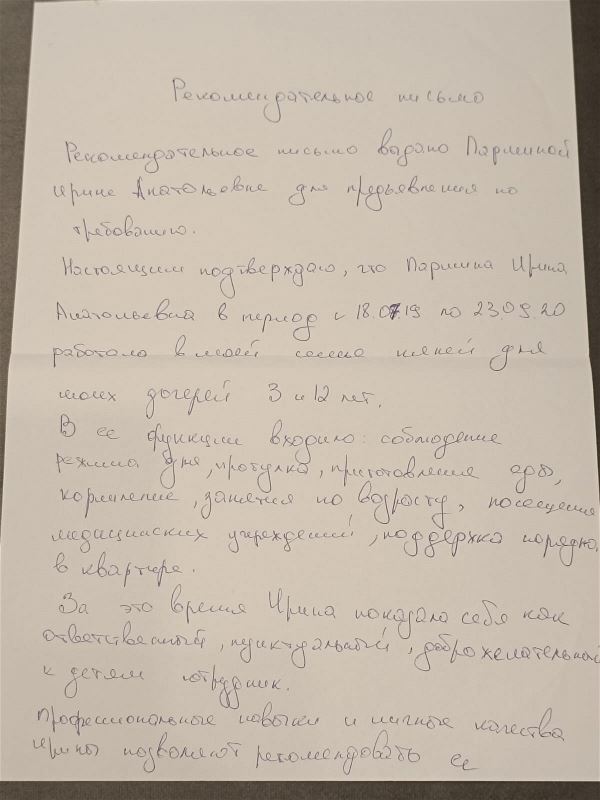 Рекомендательное письмо
Рекомендательное письмо выдано Паршиной
Ирине Анатольевне для предъявления по
требованию.
Настоящим подтверждаю, что Паршина Ирина
Анатольевна в период с 18.07.19 по 23.09.20
работала в моей семье няней для
моих дочерей 3 и 12 лет.
В ее функции входило: соблюдение
режима дня, прогулка, приготовление еды,
кормление, занятия по возрасту, посещение
медицинских учреждений, поддержка порядка
в квартире.
За это время Ирина показала себя как
ответственный, пунктуальный, доброжелательный
к детям сотрудник.
Профессиональные навыки и личные качества
Ирины позволяют рекомендовать ее